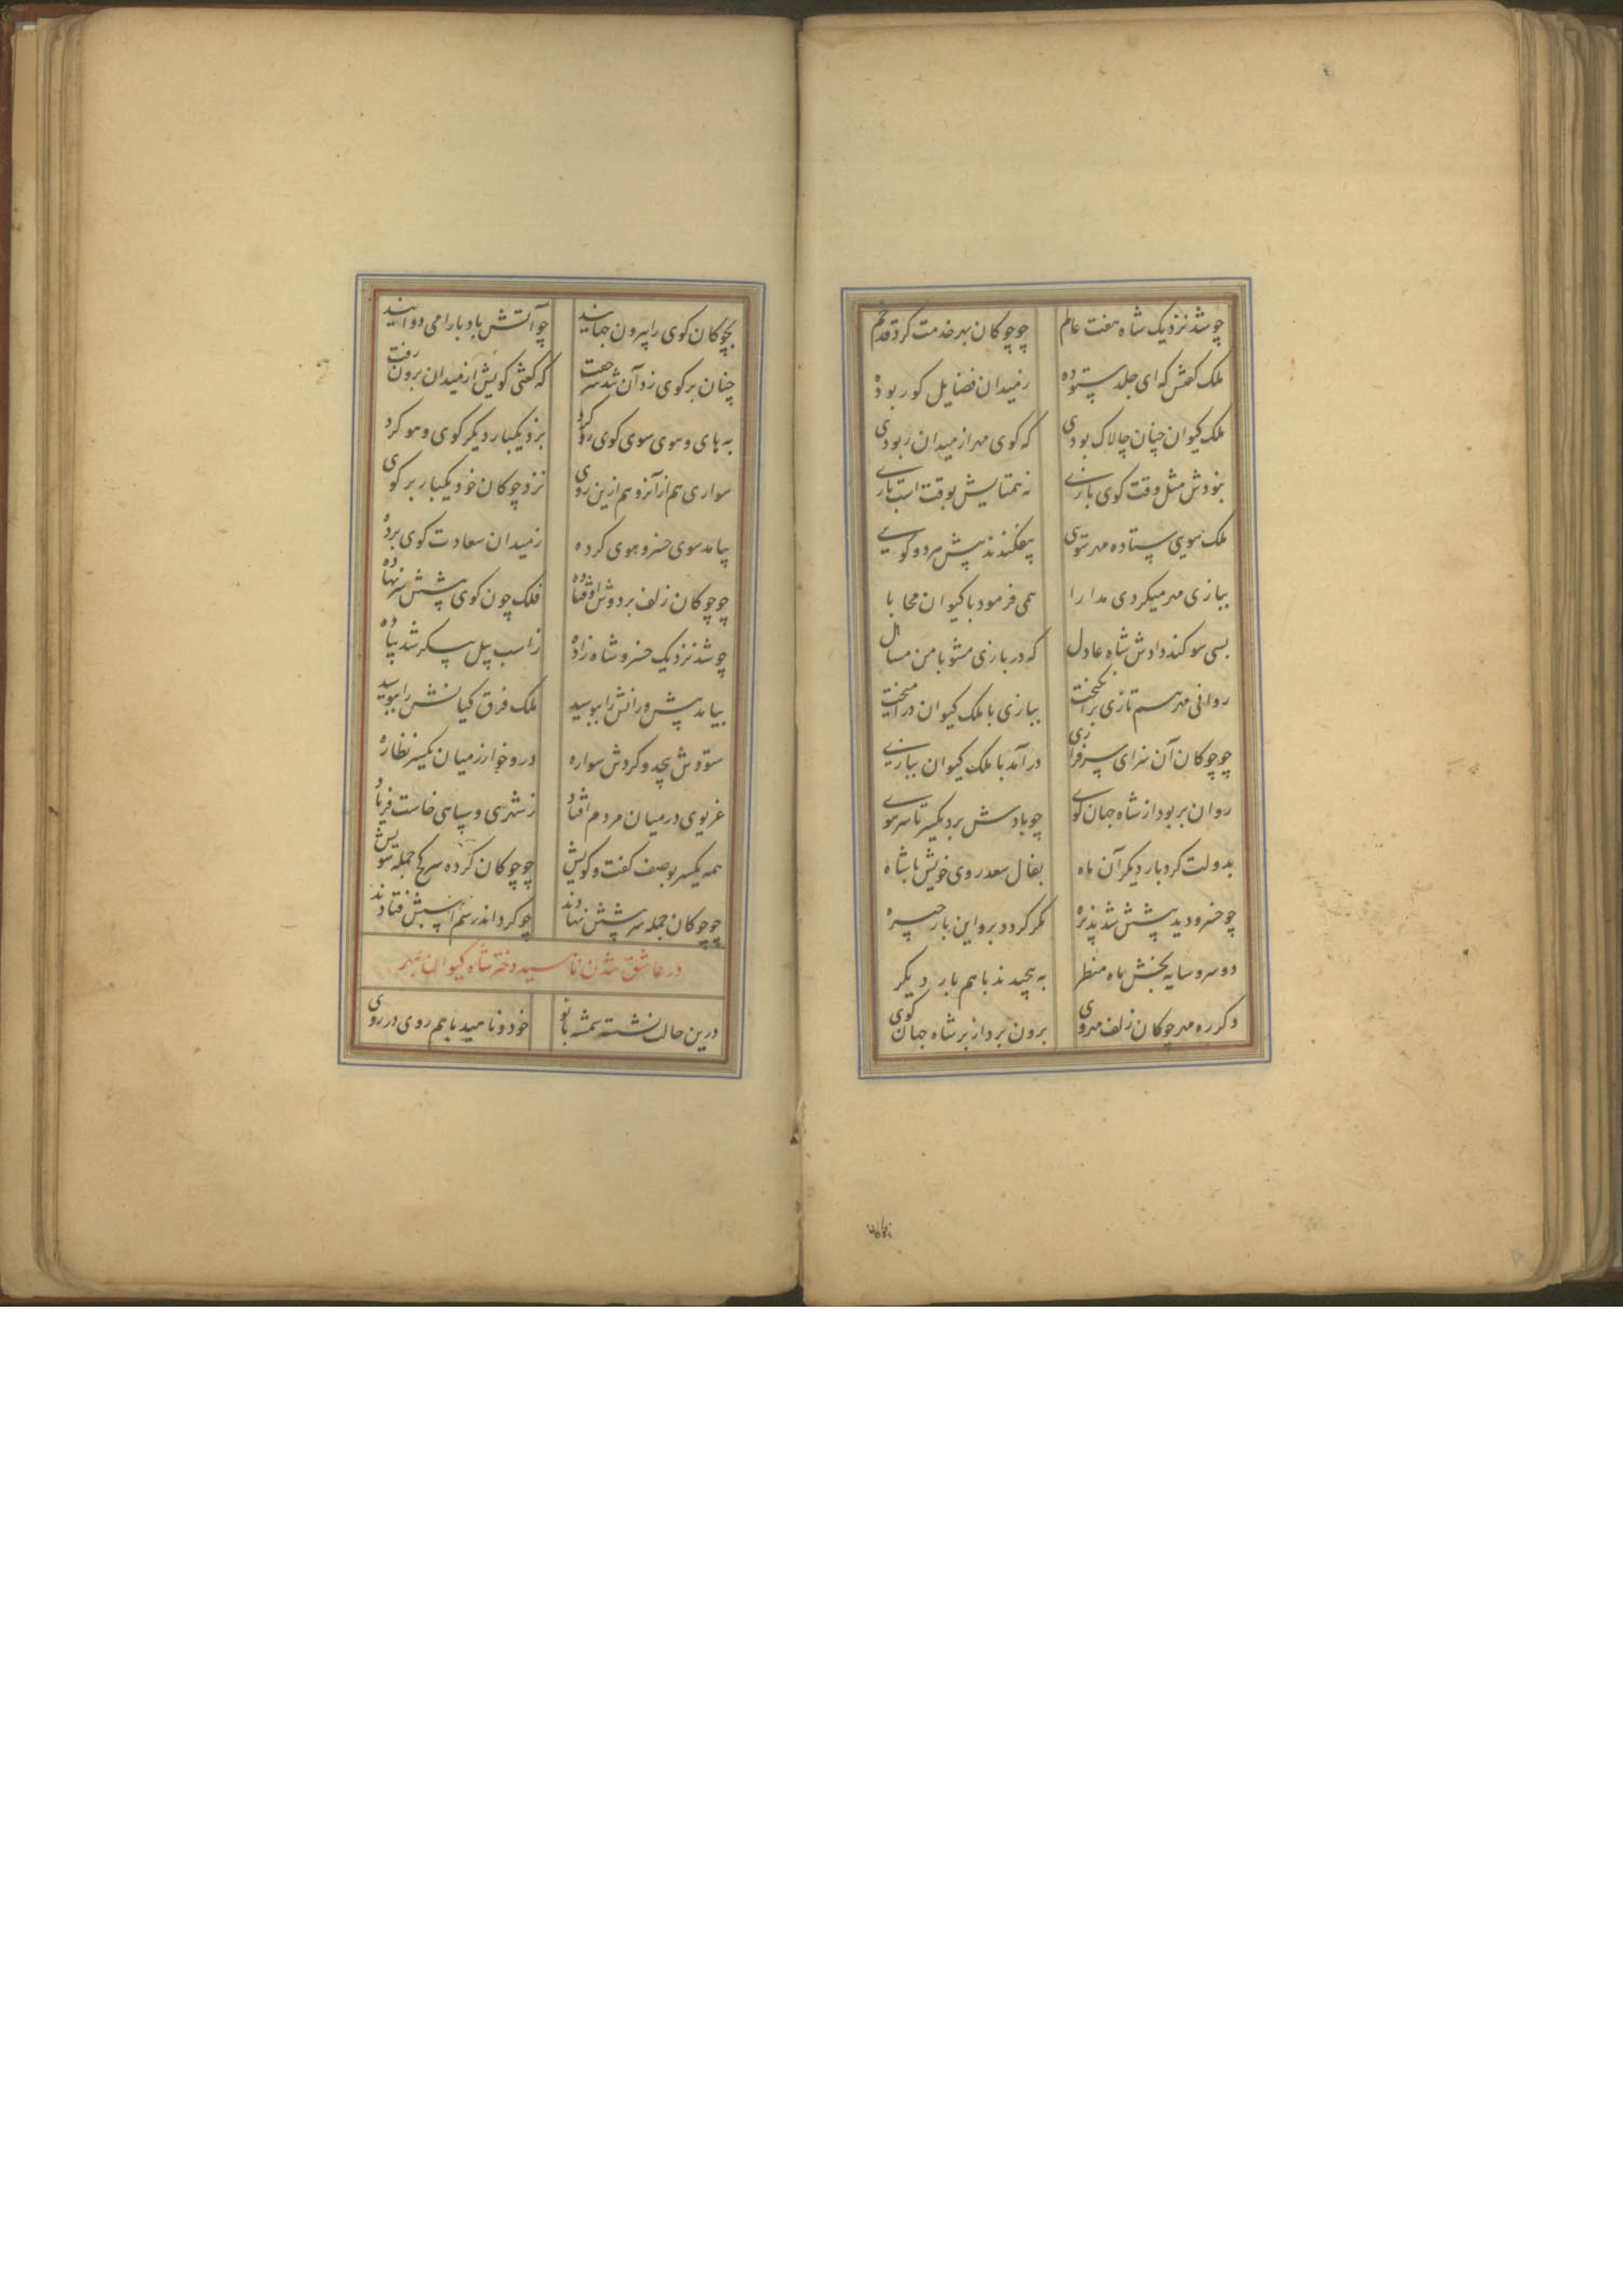 چو شد نزدیک شاه هفت عالم چو چوکان بهر خدمت کرد قد خم
ملک کفتش که ای جلد ستوده ز میدان فضایل کو ربوده
ملک کیوان چنان چالاک بودی که کوی مهر از میدان ربودی
نبودش مثل وقت کوی بازی نه همتایش بوقت اسب تازی
ملک سویی ستاده مهر سویی بیفکندند پیش هر دو کویی
ببازی مهر میکردی مدارا همی فرمود با کیوان محابا
بسی سوکند دادش شاه عادل که در بازی مشو با من مساهل
روانی مهر سم تازی برانکیخت ببازی با ملک کیوان درامیخت
چو چوکان آن سزای سرفرازی درآمد با ملک کیوان ببازی
روان بربود از شاه جهان کوی چو بادش برد یکسر تا سر موی
بدولت کرد بار دیکر آن ماه بفال سعد روی خویش با شاه
چو خسرو دید پیشش شد پذیره مکر کردد برو این بار چیره
دو سرو سایه بخش ماه منظر به پیچیدند با هم بار دیکر
دکر ره مهر چوکان زلف مهروی برون برد از بر شاه جهان کوی
بچوکان کوی را بیرون جهانید چو آتش باد پا را می دوانید
چنان بر کوی زد آن شه سر جفت که کفتی کویش از میدان برون رفت
به های و هوی سوی کوی رو کرد بزد یکبار دیکر کوی و هو کرد
سواری هم از آنرو هم ازین روی نزد چوکان خود یکبار بر کوی
بیامد سوی خسرو هوی کرده ز میدان سعادت کوی برده
چو چوکان زلف بر دوش اوفتاده فلک چون کوی پیشش سر نهاده
چو شد نزدیک خسرو شاه زاده ز اسب پیل پیکر شد پیاده
بیامد پیش و رانش را ببوسید ملک فرق کیانش را ببویید
ستودش بیحد و کردش سواره درو خوار زمیان یکسر نظاره
غریوی در میان مردم افتاد ز شهری و سپاهی خاست فریاد
همه یکسر بوصف کفت و کویش چو چوکان کرده سر کج جمله سویش
چو چوکان جمله سر پیشش نهادند چو کرد اندر سم اسبش فتادند
در عاشق شدن ناهید دختر شاه کیوان بمهر
درین حالت نشسته شمسه بانو خود و ناهید با هم روی در روی